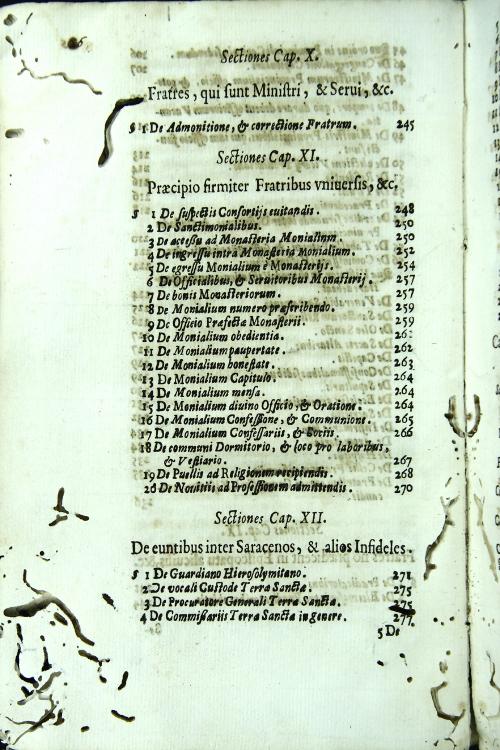 Sectiones Cap. X.
Fratres, qui sunt Ministri, & Serui, &c.
§ 1 De Admonitione, & correctione Fratrum. 245
Sectiones Cap. XI.
Præcipio firmiter Fratribus vniuersis, &c.
§ 1 De suspectis Consortijs euitandis. 248
2 De Sanctimonialibus. 250
3 De accessu ad Monasteria Monialium. 250
4 De ingressu intra Monasteria Monialium. 252
5 De egressu Monialium è Monasterijs. 254
6 De Officialibus, & Seruitoribus Monasterij. 257
7 De bonis Monasteriorum. 257
8 De Monialium numero præscribendo. 259
9 De Officio Præfectæ Monasterii. 259
10 De Monialium obedientia.
11 De Monialium paupertate. 262
12 De Monialium honestate. 263
13 De Monialium Capitulo. 264
14 De Monialium mensa. 264
15 De Monialium diuino Officio, & Oratione. 264
16 De Monialium Confessione, & Communione. 265
17 De Monialium Confessariis, & Sociis. 266
18 De communi Dormitorio, & loco pro laboribus,
& Vestiario. 267
19 De Puellis ad Religionem recipiendis. 268
20 De Nouitiis ad Professionem admittendis. 270
Sectiones Cap. XII.
De euntibus inter Saracenos, & alios Infideles.
§ 1 De Guardiano Hierosolymitano. 271
2 De vocali Custode Terræ Sanctæ. 275
3 De Procuratore Generali Terræ Sanctæ. 275
4 De Commissariis Terræ Sanctæ in genere. 277
5 De